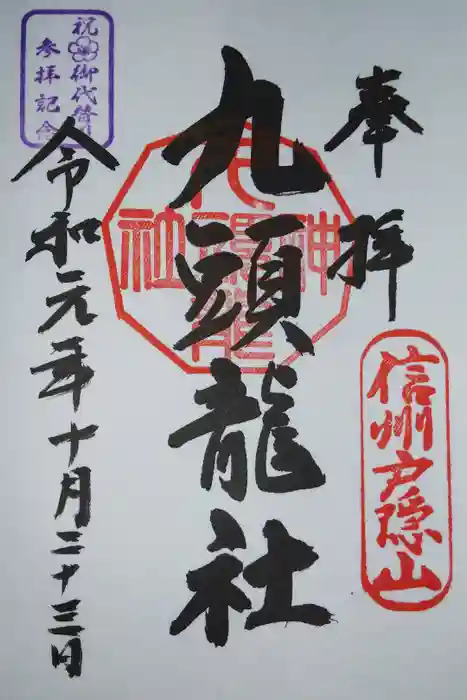 奉拝
信州戸隠山
九頭龍社
令和元年十月二十三日
祝御代替
参拝記念